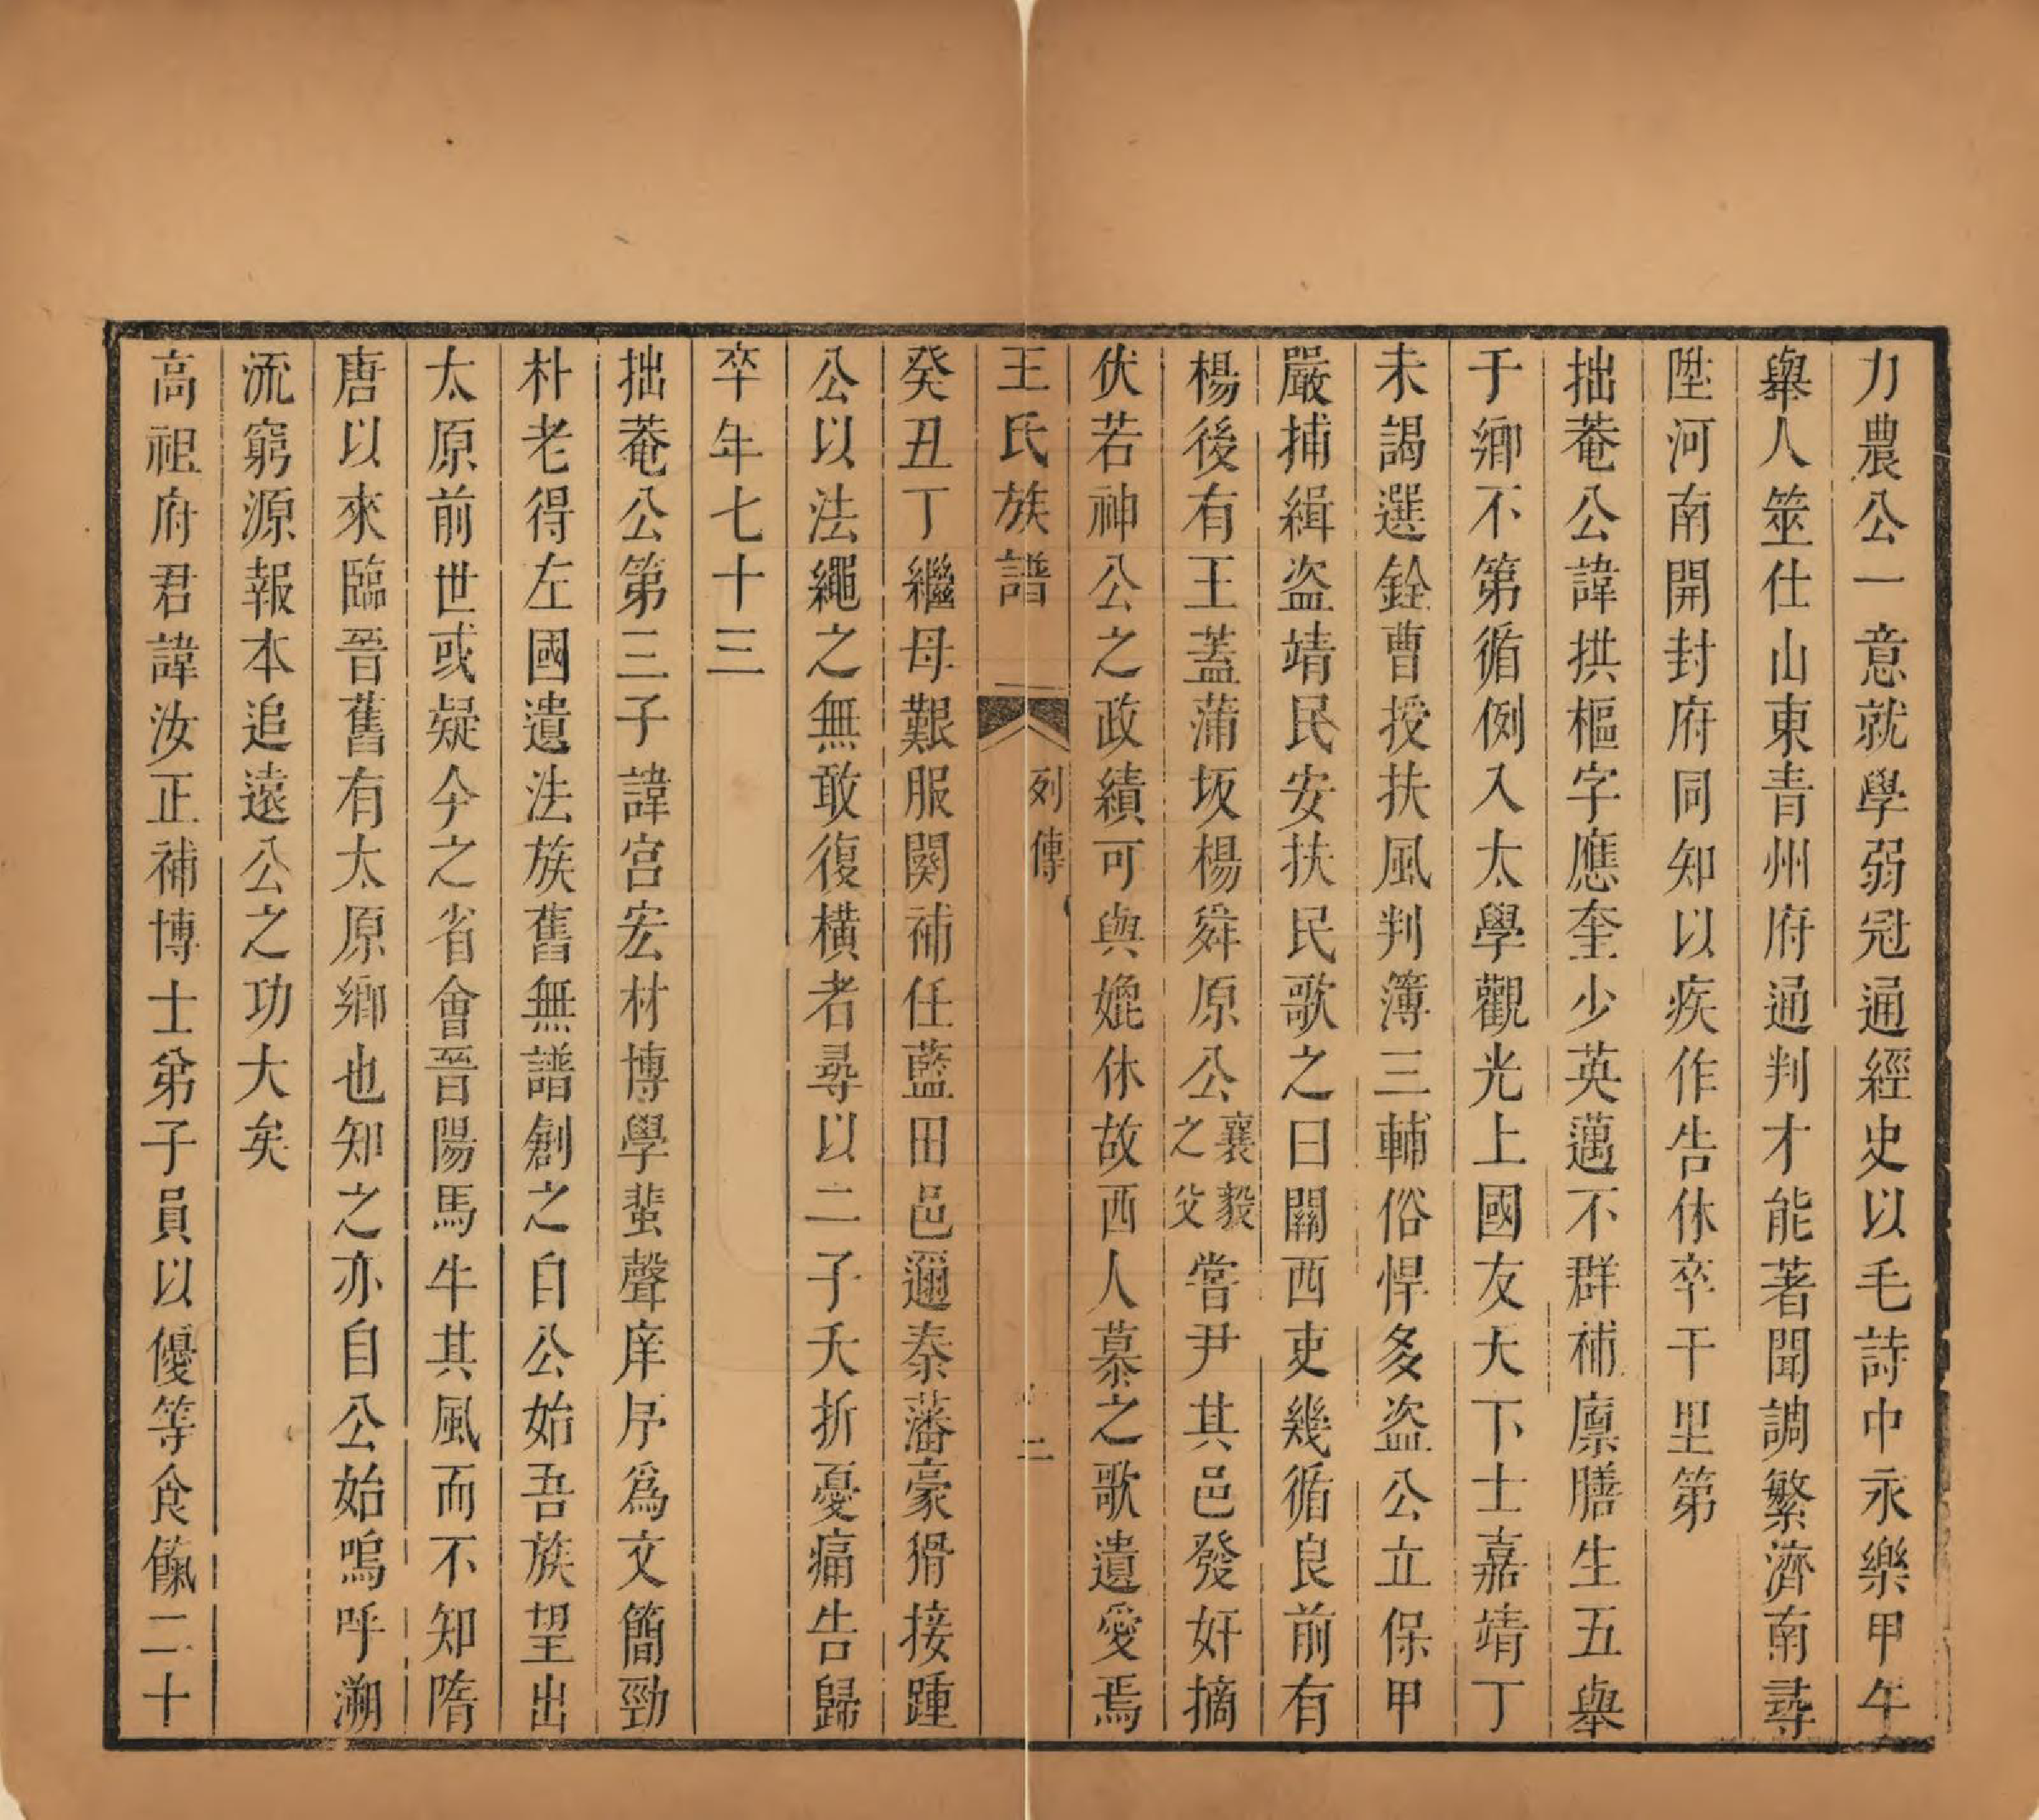 力農公一意就學弱冠通經史以毛詩中永樂甲午
舉人筮仕山東青州府通判才能著聞調繁濟南尋
陞河南開封府同知以疾作告休卒于里第
拙菴公諱拱樞字應奎少英邁不群補廪膳生五舉
于鄉不第循例入太學觀光上國友天下士嘉靖丁
未謁選銓曹授扶風判簿三輔俗悍多盗公立保甲
嚴捕緝盗靖民安扶民歌之曰關西吏幾循良前有
楊後有王蓋蒲坂楊舜原公襄毅之父嘗尹其邑發奸摘
伏若神公之政績可與媲休故西人慕之歌遺愛焉
王氏族譜 列傳 二
癸丑丁繼母艱服闋補任藍田邑邇秦藩豪猾接踵
公以法繩之無敢復横者尋以二子夭折憂痛告歸
卒年七十三
拙菴公第三子諱宫宏材博學蜚聲庠序爲文簡勁
朴老得左國遺法族舊無譜創之自公始吾族望出
太原前世或疑今之省會晉陽馬牛其風而不知隋
唐以來臨晉舊有太原鄉也知之亦自公始嗚呼溯
流窮源報本追遠公之功大矣
高祖府君諱汝正補博士弟子員以優等食餼二十